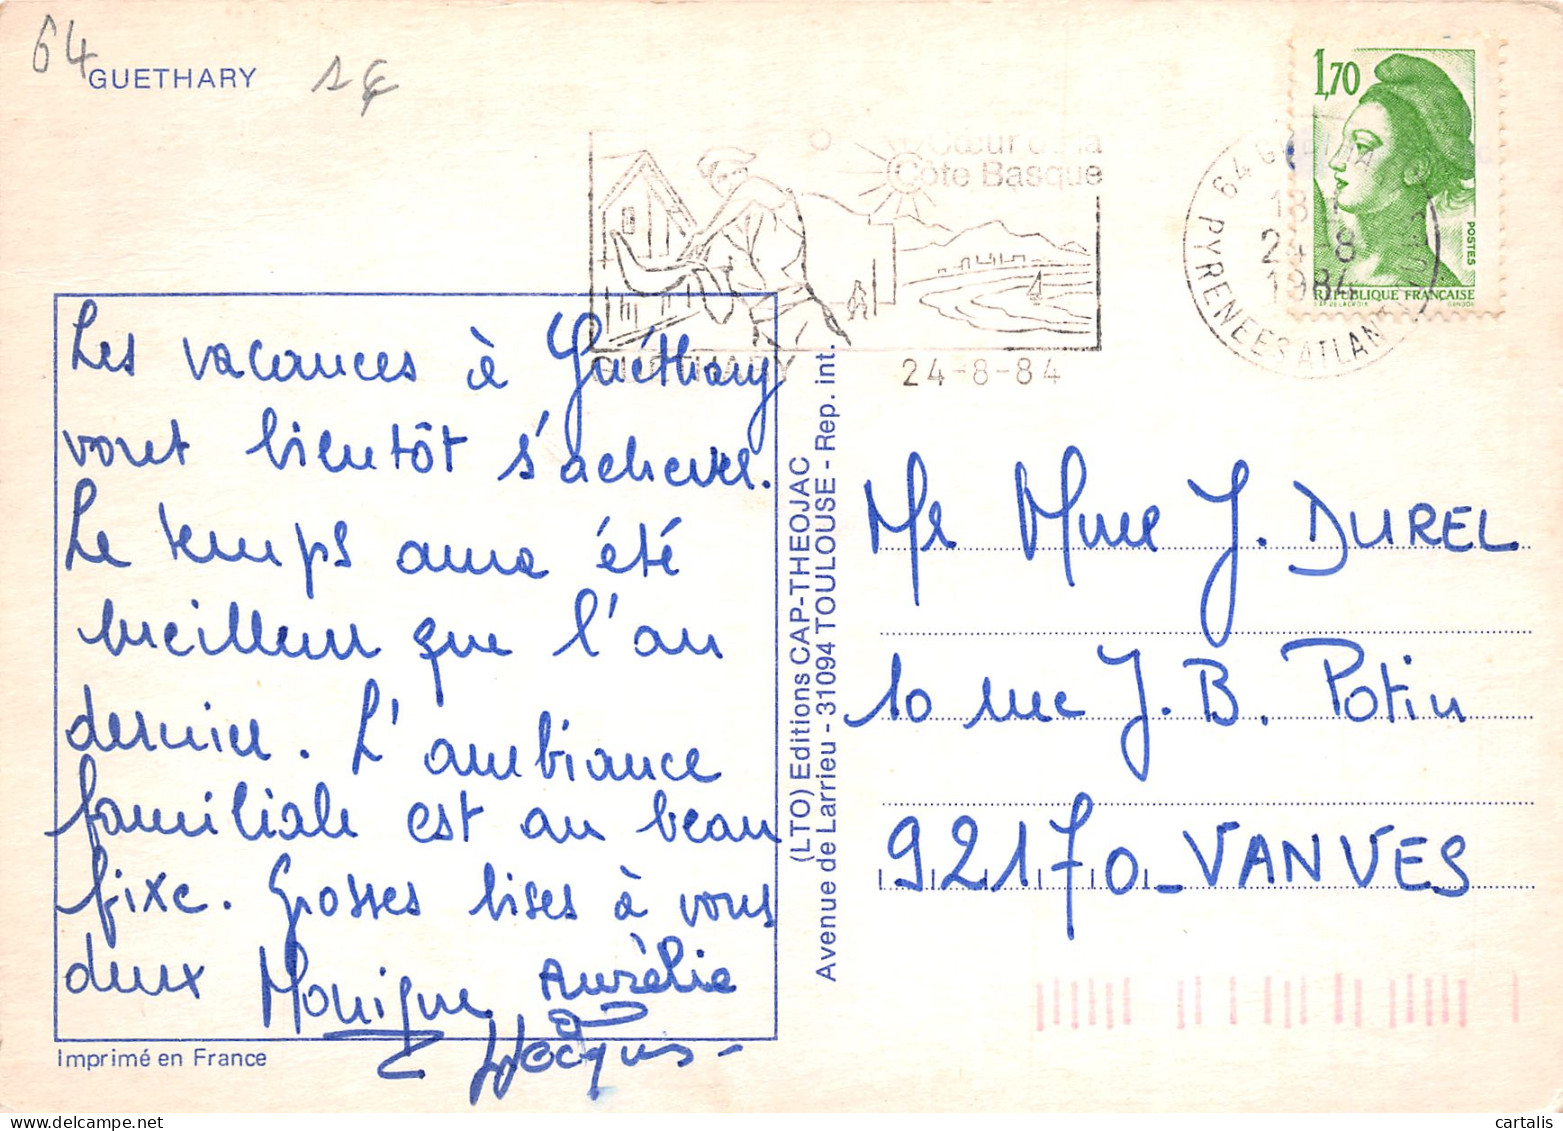 64
GUETHARY
1€
1,70
POSTES
RÉPUBLIQUE FRANÇAISE
Cœur de la
Côte Basque
GUETHARY
24-8-84
64 G
24-8
1984
PYRENEES ATLANT
Les vacances à Guéthary
vont bientôt s'achever.
Le temps aura été
meilleur que l'an
dernier. L'ambiance
familiale est au beau
fixe. Grosses bises à vous
deux Monique Aurélie
Jacques
(LTO) Editions CAP-THEOJAC
Avenue de Larrieu - 31094 TOULOUSE - Rep. int.
Mr Mme J. DUREL
10 rue J.B. Potin
92170_VANVES
Imprimé en France
cartalis